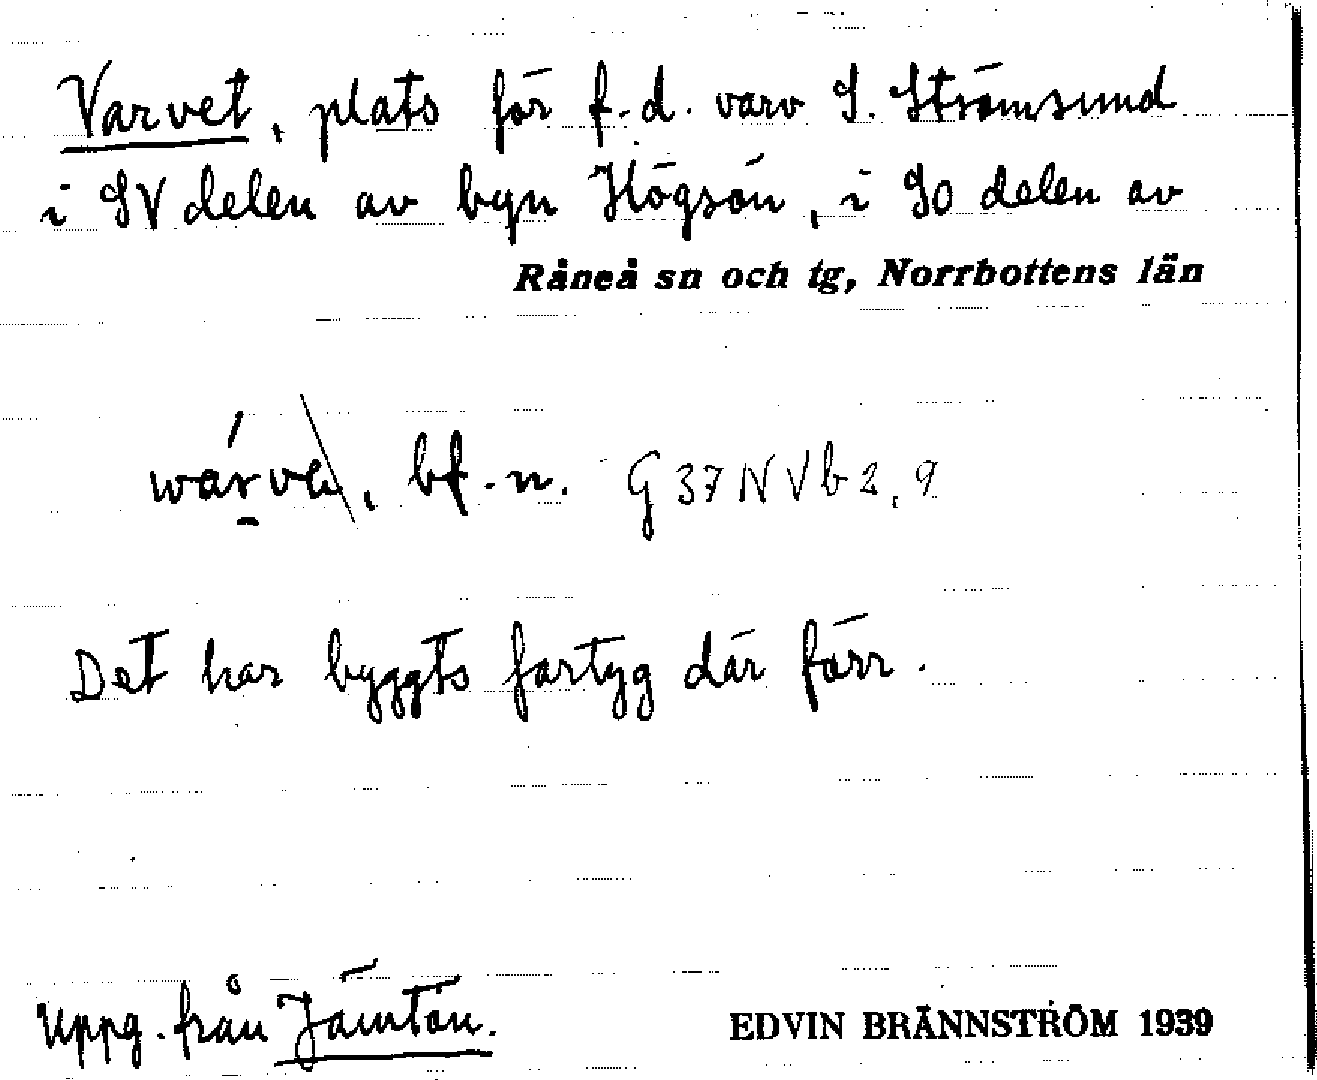 Varvet, plats för f.d. varv S. Strömsund
i SV delen av byn Högsön, i SO delen av
Råneå sn och tg, Norrbottens län
bf. n. G 37 NV b 2, 9
Det har byggts fartyg där förr.
Uppg. från Jämtön.
EDVIN BRÄNNSTRÖM 1939